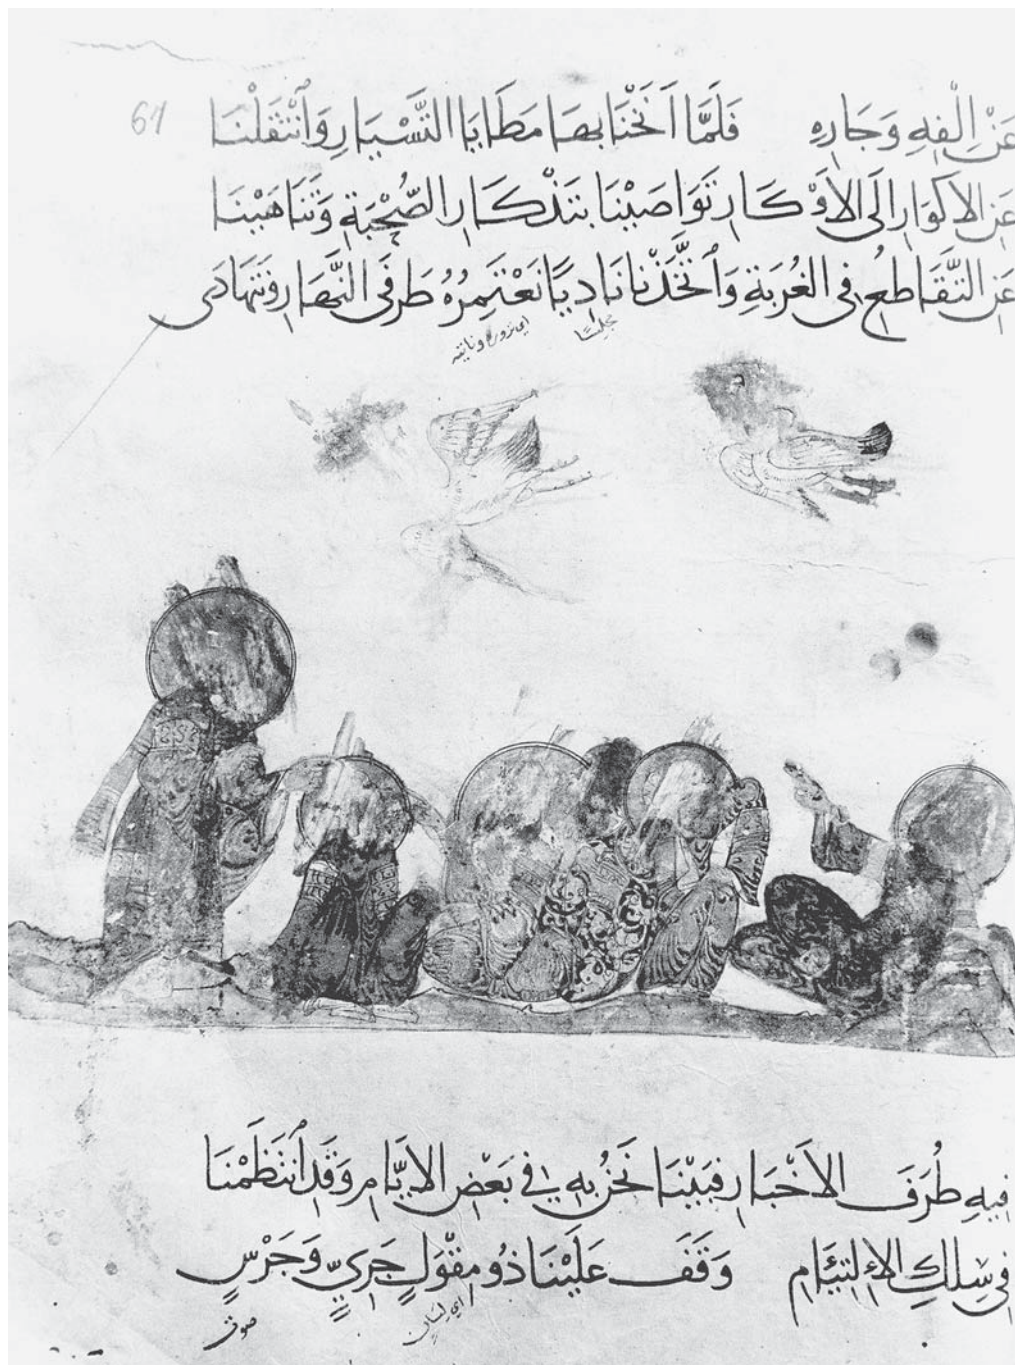 61
عَنْ اِلْفِهِ وَجَارِهِ فَلَمَّا اَنَخْنَا بِهَا مَطَايَا التَّسْيَارِ وَانْتَقَلْنَا
عَنِ الاَكْوَارِ اِلَى الاَوْكَارِ تَوَاصَيْنَا بِتَذْكَارِ الصُّحْبَةِ وَتَنَاهَيْنَا
عَنِ التَّقَاطُعِ فِي الغُرْبَةِ وَاتَّخَذْنَا نَادِيًا نَعْتَمِرُهُ طَرَفَيِ النَّهَارِ وَنَتَهَادَى
مجلسًا
اي نزوره وناتيه
فِيهِ طُرَفَ الاَخْبَارِ فَبَيْنَا نَحْنُ بِهِ فِي بَعْضِ الاَيَّامِ وَقَدِ انْتَظَمْنَا
فِي سِلْكِ الاِلْتِيَامِ وَقَفَ عَلَيْنَا ذُو مِقْوَلٍ جَرِيٍّ وَجَرْسٍ
اي لسان
صوت